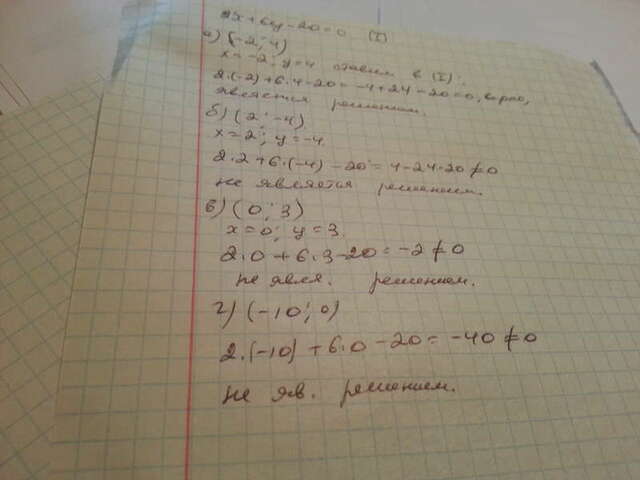 2x + 6y - 20 = 0 (I)
а) (-2; 4)
x = -2 y = 4 ставим в (I):
2·(-2) + 6·4 - 20 = -4 + 24 - 20 = 0, верно,
является решением.
б) (2; -4)
x = 2; y = -4
2·2 + 6·(-4) - 20 = 4 - 24 - 20 ≠ 0
не является решением.
в) (0; 3)
x = 0; y = 3.
2·0 + 6·3 - 20 = -2 ≠ 0
не явля. решением.
г) (-10; 0)
2·(-10) + 6·0 - 20 = -40 ≠ 0
не яв. решением.